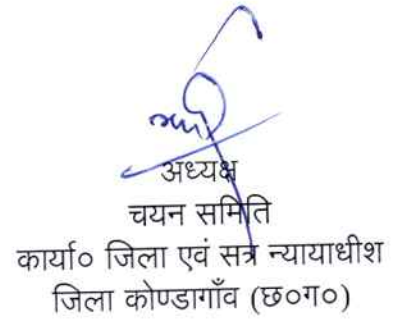 अध्यक्ष
चयन समिति
कार्या० जिला एवं सत्र न्यायाधीश
जिला कोण्डागाँव (छ०ग०)